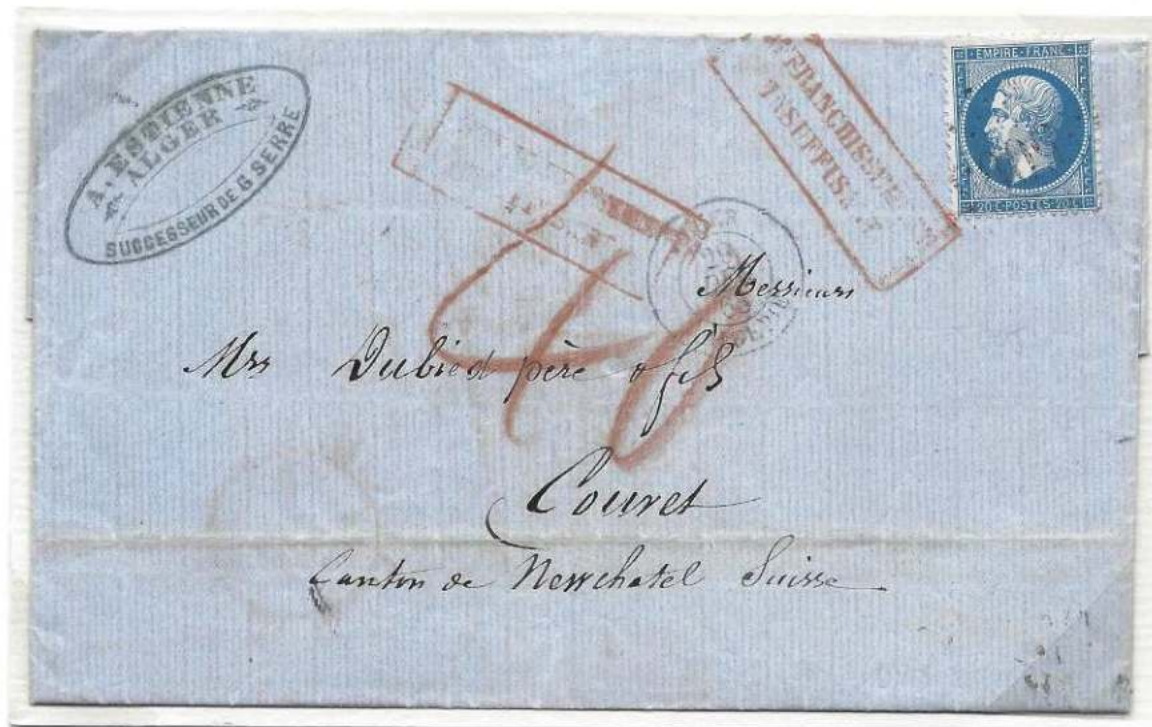 A. ESTIENNE
ALGER
SUCCESSEUR DE G SERRE
AFFRANCHISSEMENT
INSUFFISANT
EMPIRE-FRANC-
20 C-POSTES-20 C
40
Messieurs
Mrs Dubied père & fils
Couvet
Canton de Newchatel Suisse